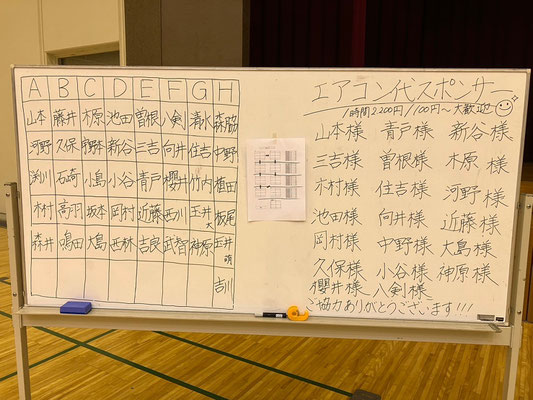 A B C D E F G H
山本 藤井 木原 池田 曽根 八剣 清水 森脇
河野 久保 野本 新谷 三吉 向井 住吉 中野
渕川 石崎 小島 小谷 青戸 櫻井 竹内 植田
木村 高羽 坂本 岡村 近藤 西川 玉井大 板尾
森井 鳴田 大島 西林 吉良 武智 神原 玉井萌
吉川
エアコン代スポンサー
1時間2200円/100円〜大歓迎
山本様 青戸様 新谷様
三吉様 曽根様 木原様
木村様 住吉様 河野様
池田様 向井様 近藤様
岡村様 中野様 大島様
久保様 小谷様 神原様
櫻井様 八剣様
ご協力ありがとうございます!!!